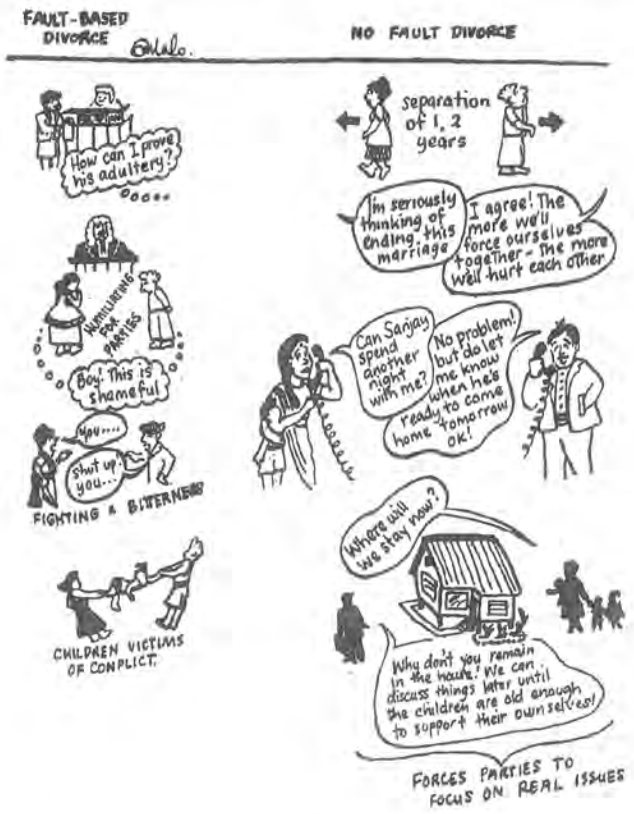 FAULT-BASED
DIVORCE
NO FAULT DIVORCE
How can I prove
his adultery?
HUMILIATING
FOR
PARTIES
Boy! This is
shameful
you....
shut up.
you...
FIGHTING & BITTERNESS
CHILDREN VICTIMS
OF CONFLICT.
separation
of 1, 2
years
I'm seriously
thinking of
ending this
marriage
I agree! The
more we'll
force ourselves
together - the more
we'll hurt each other
Can Sanjay
spend
another
night
with me?
No problem!
but do let
me know
when he's
ready to come
home tomorrow
ok!
Where will
we stay now?
Why don't you remain
in the house! We can
discuss things later until
the children are old enough
to support their ownselves!
FORCES PARTIES TO
FOCUS ON REAL ISSUES